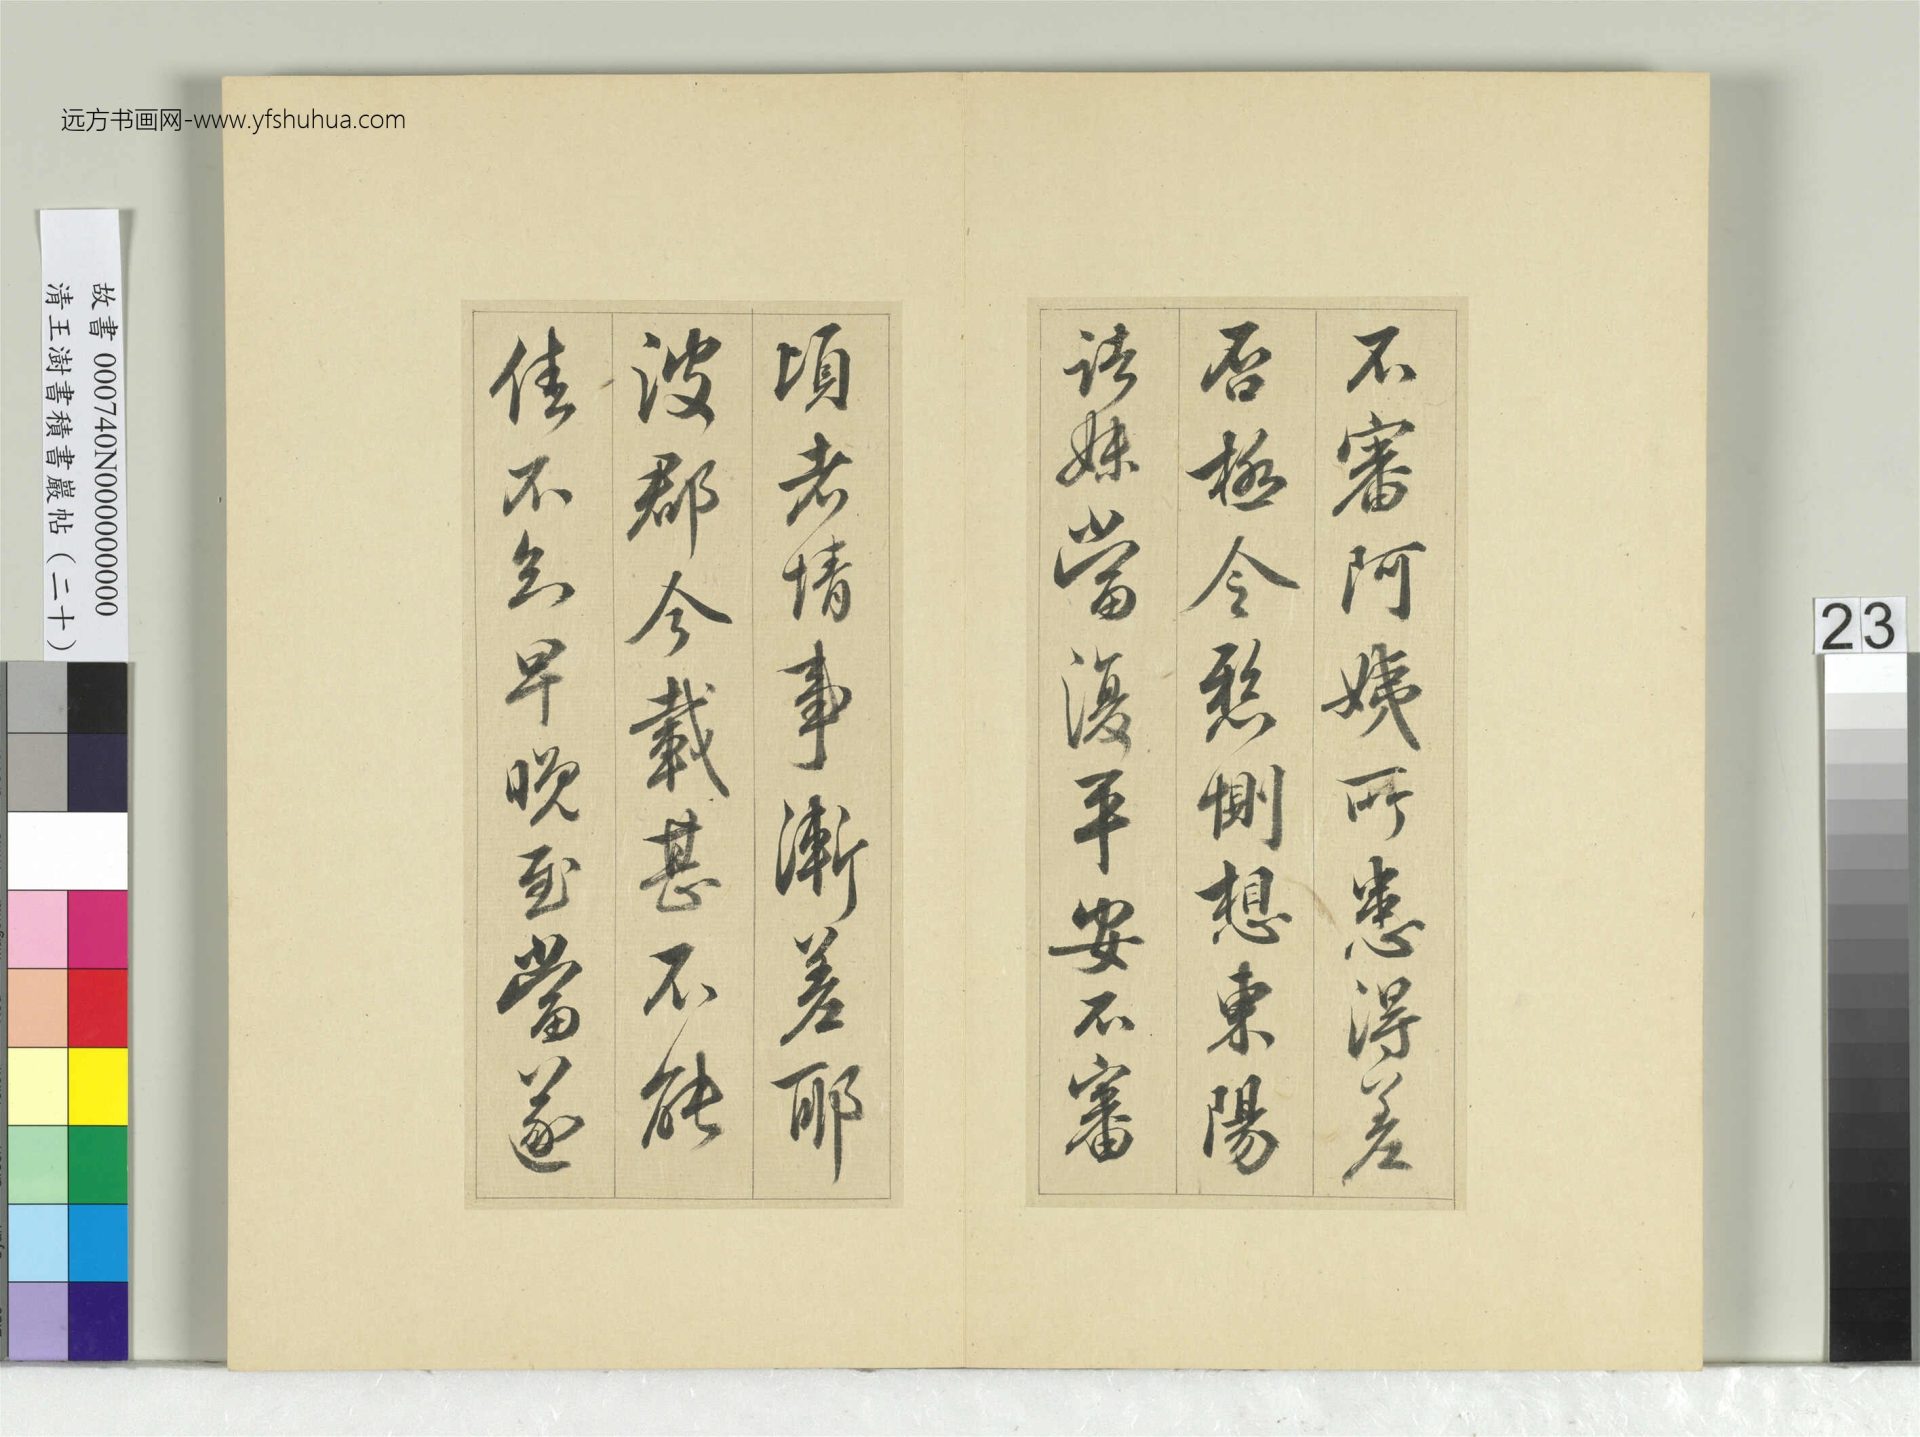 远方书画网-www.yfshuhua.com
故書 000740N000000000
清王澍書積書巖帖（二十）
23
不審阿姨所患得差
否極令愁惻想東陽
諸妹當復平安不審
頃者情事漸差耶
彼郡今載甚不能
佳不知早晚至當遂